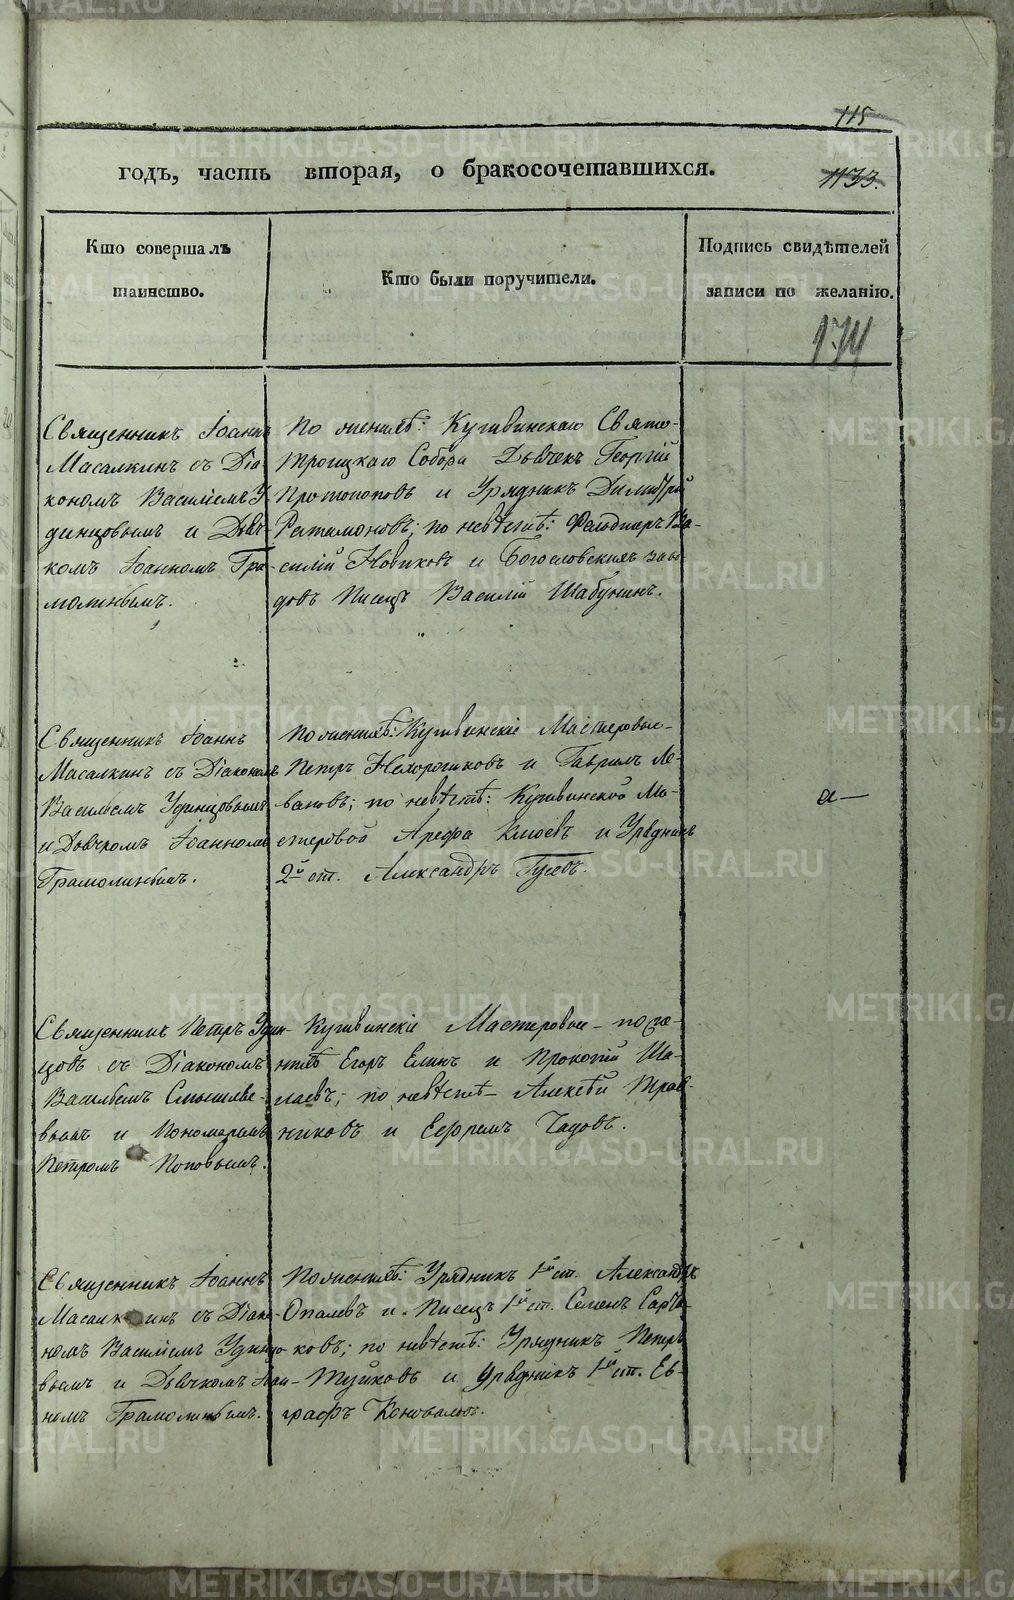 115
годъ, часть вторая, о бракосочетавшихся.
1133.
Кто совершалъ
таинство.
Кто были поручители.
Подпись свидѣтелей
записи по желанію.
174
Священникъ Іоаннъ
Масалкинъ съ Діа
кономъ Василіемъ У
динцовымъ и Дьяч
комъ Іоанномъ Гра
молинымъ.
По женихѣ: Кушвинскаго Свято-
Троицкаго Собора Дьячекъ Георгій
Протопоповъ и Урядникъ Димитрій
по невѣстѣ: Фельдшеръ Ва-
силій Новиковъ и Богословскихъ заво
довъ Писецъ Василій Шабунинъ.
Священникъ Іоаннъ
Масалкинъ съ Діакономъ
Василіемъ Удинцовымъ
и Дьячкомъ Іоанномъ
Грамолинымъ.
По женихѣ: Кушвинскіе Мастеровые-
Петръ Нехорошковъ и Гаврилъ Ле-
вановъ; по невѣстѣ: Кушвинской Ма-
стеровой Арефа Клюевъ и Урядникъ
2й ст. Александръ Гусевъ.
а—
Священникъ Петръ Удин-
цовъ съ Діакономъ
Васильемъ Смышляе-
вымъ и Пономаремъ
Петромъ Поповымъ.
Кушвинскіе Мастеровые - по же-
нихѣ Егоръ Елинъ и Прокопій Ша-
лаевъ; по невѣстѣ - Алексѣй Трав-
никовъ и Ефремъ Чадовъ.
Священникъ Іоаннъ
Масалкинъ съ Діако-
номъ Василіемъ Удинцо
вымъ и Дьячкомъ Іоан-
номъ Грамолинымъ.
По женихѣ: Урядникъ 1й ст. Александръ
Опалевъ и Писецъ 1й ст. Семенъ
ковъ; по невѣстѣ: Урядникъ Петръ
Туйковъ и Урядникъ 1й ст. Ев-
графъ Коноваловъ.
METRIKI.GASO-URAL.RU